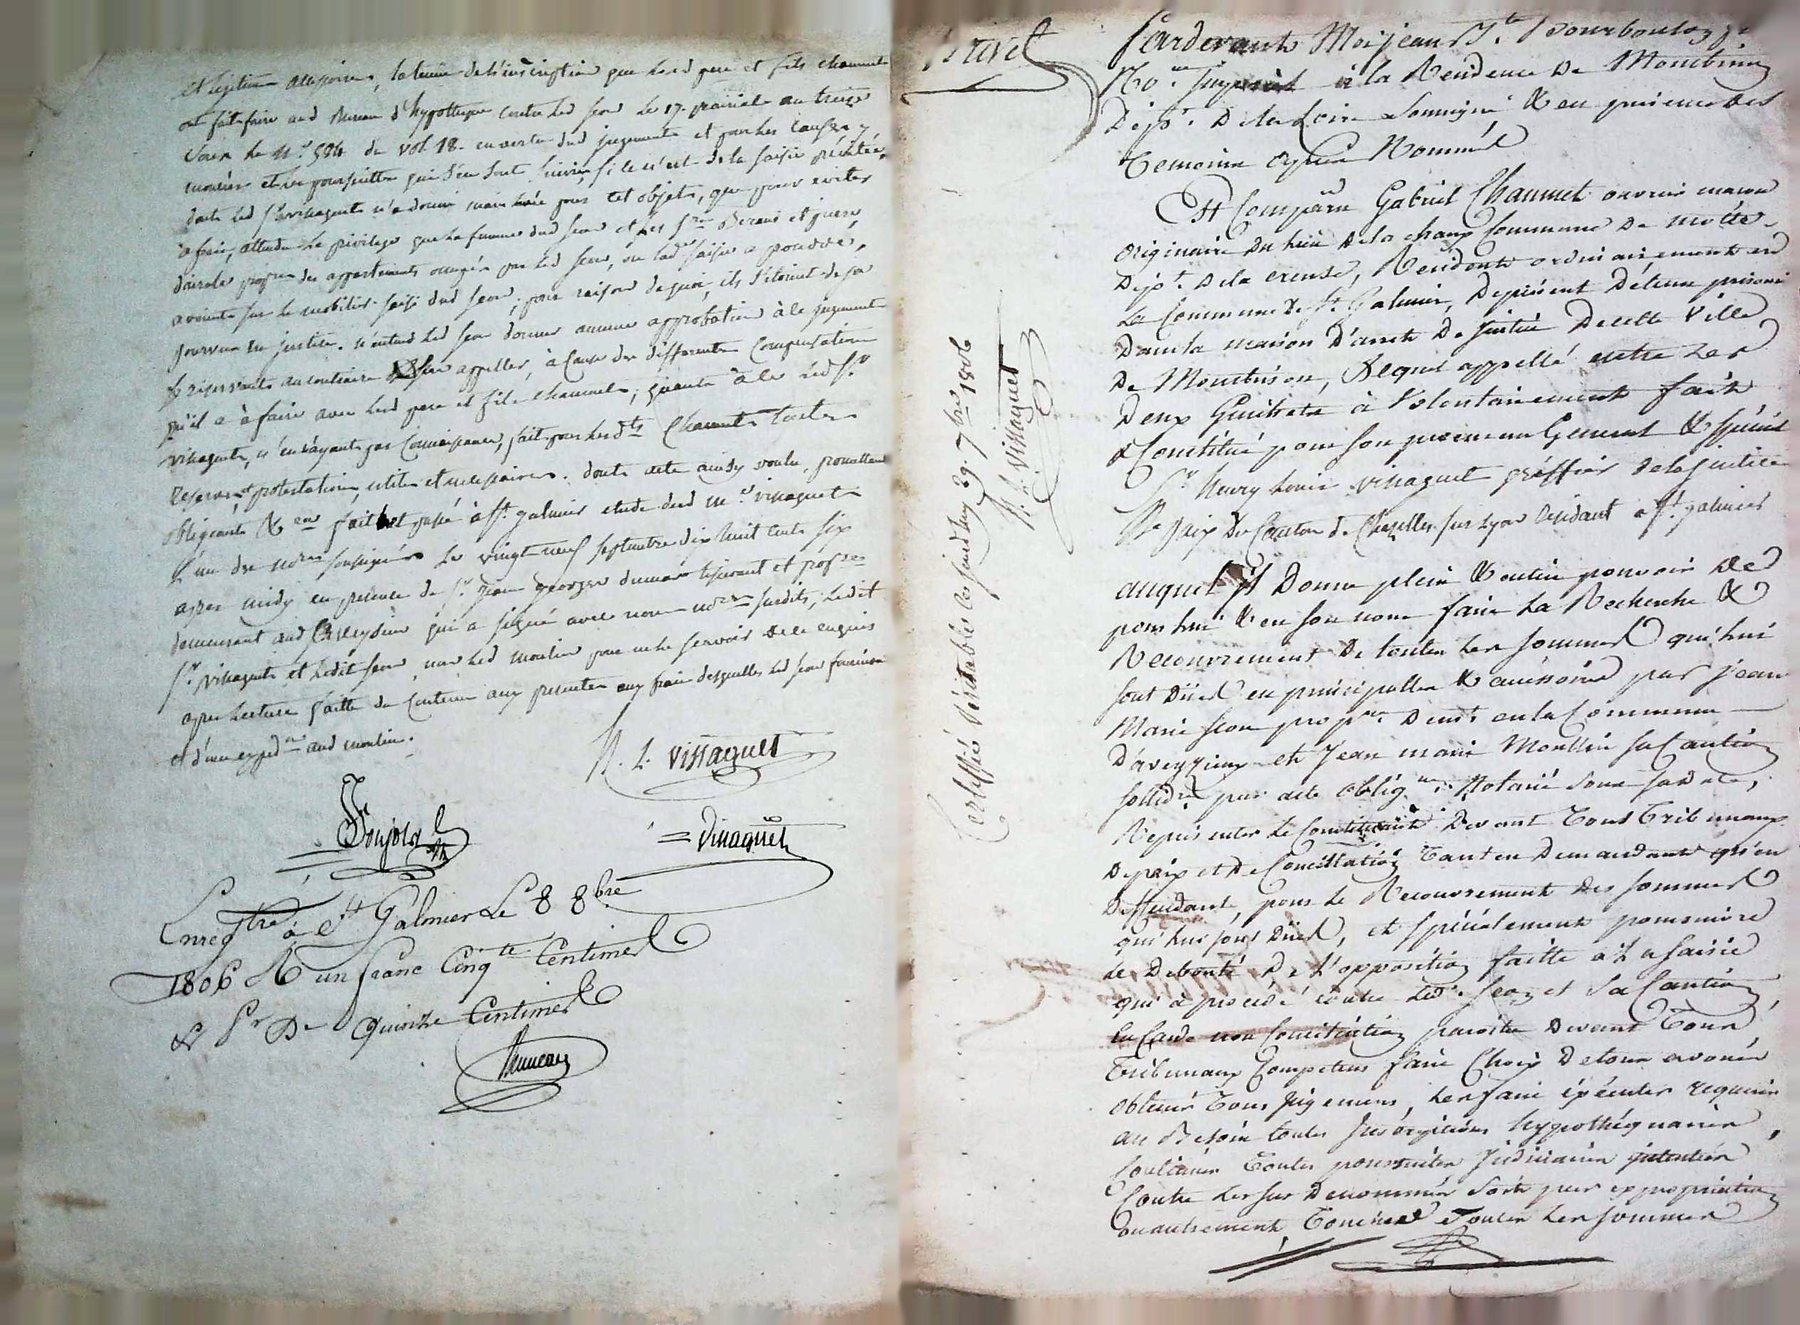 et légitime accessoires, la teneur de l'inscription que lesd pere et fils chaumet
ont fait faire aud Bureau d'hypotheque contre led Jean Le 17. prairial an treize
Sous le n.º 584 du vol 18. en vertu dud jugement et pour les causes y
et les poursuittes qui s'en sont suivies, si ce n'est de la saisie précitée,
dont led S.r vissaguet n'a donné main levée pour cet objet, que pour eviter
a frais, attendu le privilege que la femme dud Jean et les S.rs et
des appartements occupés par led Jean, ou lad saisie a
avoient sur le mobilier saisi dud Jean, pour raison de quoi, ils
en justice. n'entend led Jean donner aucune approbation à ce jugement
se reservant au contraire d'en appeller, à cause des differentes compensations
qu'il a à faire avec lesd pere et fils chaumet; quant à ce led S.r
vissaguet, n'en ayant pas connoissance, fait pour lesd.ts Chaumet toutes
reserves et protestations utiles et necessaires. dont acte ainsy voulu, promettant
obligeant &.a fait et passé à S.t galmier etude dud m.e vissaguet
l'un des no.res soussignés Le vingt neuf septembre dix huit cents six
apres midy en presence de S.r Jean george
demeurant aud qui a signé avec nous no.res susdits, Ledit
S.r vissaguet et ledit Jean, non led moulin pour ne le scavoir de ce enquis
apres lecture faitte du contenu aux presentes aux frais desquelles led Jean
et d'une exped.on aud moulin.
h. L. vissaguet
Vissaguet
Enreg.tré à S.t Galmier Le 8 8bre
1806 R un franc Cinq.te Centimes
& P.r D.e Quinze Centimes
Pardevant Moi Jean B.te
No.re Imperial à la Residence de Montbrison
Dep.t De la Loire soussigné & en presence des
Temoins Apres Nommés
Est Comparu Gabriel Chaumet ouvrier maçon
originaire du lieu De la chaux Commune De
Dep.t De la creuse, Residant ordinairement en
La Commune de S.t Galmier, De présent Détenu prisonier
Dans la maison D'arrêt De Justice De cette Ville
De Montbrison, Lequel appellé entre les
Deux Guichets à Volontairement fait
& Constitué pour son procureur General & spécial
S.r henry Louis vissaguet greffier de la justice
De paix Du Canton de Chazelles sur Lyon résidant a S.t galmier
auquel il Donne plein & entier pouvoir De
pour lui & en son nom faire La Recherche &
Recouvrement De toutes les sommes qui lui
sont Dües en principalles & accessoires par Jean
Marie Jean prop.re Dem.t en la Commune
D'aveyzieux et Jean marie Moullin sa Caution
sollid.re par acte oblig.re Notarié sous sa date,
Representer le Constituant Devant Tous Tribunaux
De paix et De Conciliation Tant en Demandant qu'en
Deffendant, pour le Recouvrement des sommes
qui lui sont Dües, et spécialement poursuivre
le Debouté De L'opposition faitte à la saisie
qui a procédé contre led. Jean et sa Caution
En Cas de non Conciliation paroitre Devant Tous
Tribunaux Compétens faire Choix De tous avoués
obtenir Tous Jugemens, les faire éxécuter requerir
au Besoin toutes Inscriptions hypothéquaires,
Toutes poursuites Judiciaires intenter
Contre les sus Denommés soit par expropriation
ou autrement, Toucher Toutes les sommes
Certiffié Véritable ce jourd'huy 29 7bre 1806
h. L. Vissaguet